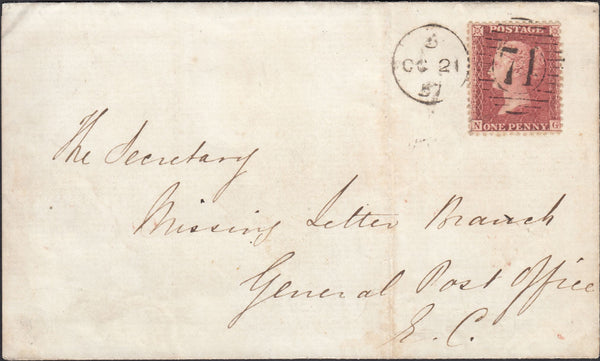 POSTAGE
6
OC 21
57
71
N ONE PENNY G
The Secretary
Missing Letter Branch
General Post Office
E. C.